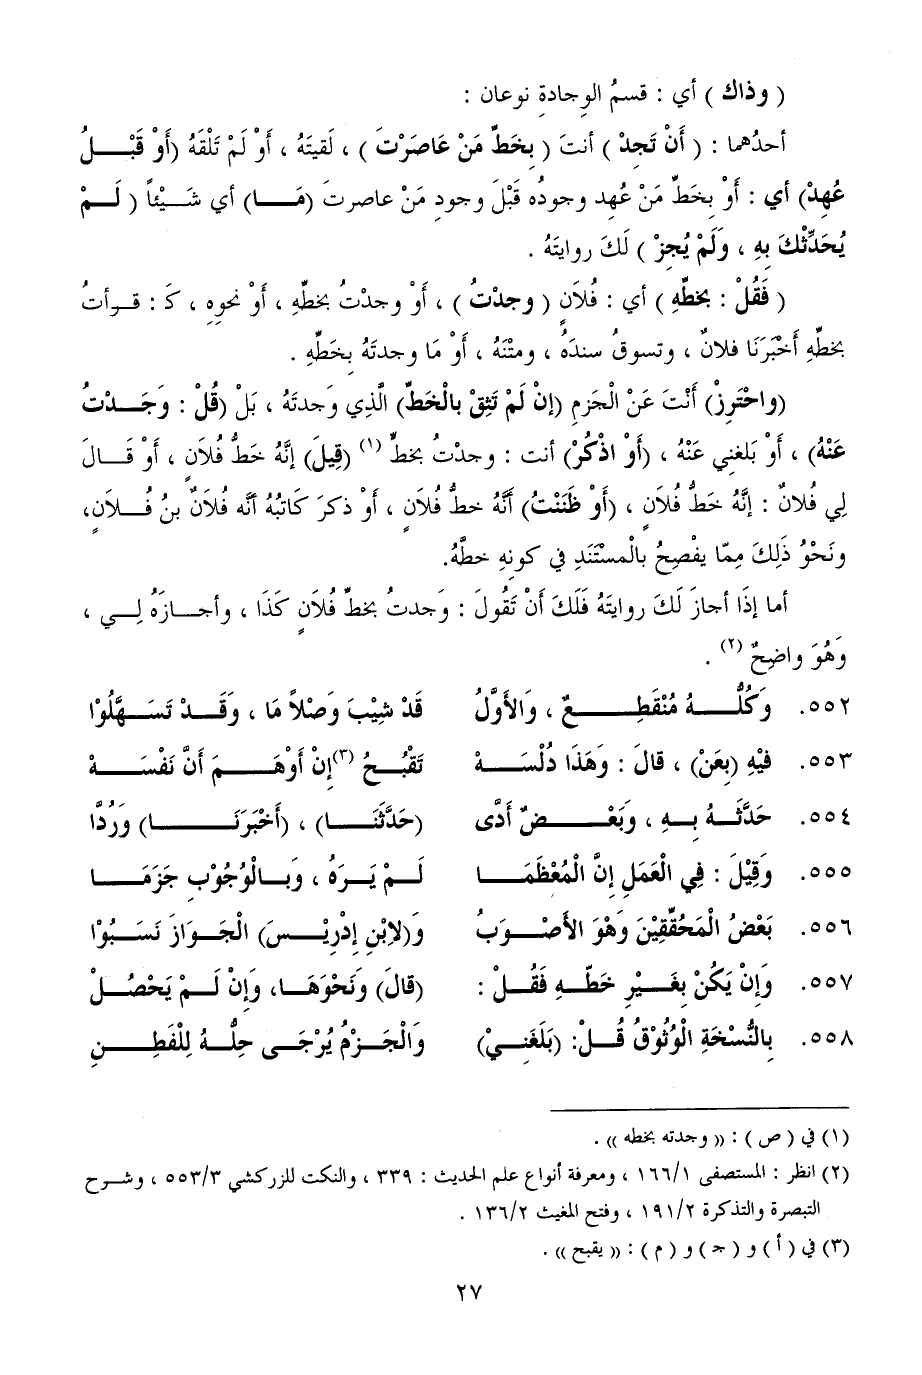 ( وذاك ) أي : قسمُ الوِجادةِ نوعان :
أحدُهما : ( أَنْ تَجِدْ ) أنتَ ( بِخَطِّ مَنْ عَاصَرْتَ ) ، لَقيتَهُ ، أَوْ لَمْ تَلْقَهُ (أَوْ قَبْـــلُ
عُهِدْ) أي : أَوْ بِخَطِّ مَنْ عُهِد وجودُه قَبْلَ وجودِ مَنْ عاصرتَ (مَـــا) أي شَيْئاً ( لَـــمْ
يُحَدِّثْكَ بِهِ ، وَلَمْ يُجِزْ ) لَكَ روايتَهُ .
( فَقُلْ : بخطِّهِ ) أي : فُلاَنٍ ( وجدْتُ ) ، أَوْ وجدْتُ بخطِّهِ ، أَوْ نحوِهِ ، كَـ : قـرأتُ
بخطِّهِ أَخْبَرَنَا فلانٌ ، وتسوقُ سندَهُ ، ومتْنَهُ ، أَوْ مَا وجدتَهُ بِخطِّهِ .
(واحْتَرِزْ) أَنْتَ عَنْ الْجَزمِ (إنْ لَمْ تَثِقْ بالْخَطِّ) الَّذِي وَجدتَهُ ، بَلْ (قُلْ : وَجَـــدْتُ
عَنْهُ) ، أَوْ بَلغني عَنْهُ ، (أَوْ اذْكُرْ) أنت : وجدْتُ بخطٍّ (١) (قِيلَ) إنَّهُ خَطُّ فُلاَنٍ ، أَوْ قَـــالَ
لِي فُلانٌ : إنَّهُ خَطُّ فُلاَنٍ ، (أَوْ ظَنَنْتُ) أَنَّهُ خطُّ فُلاَنٍ ، أَوْ ذكرَ كَاتبُهُ أنَّه فُلاَنٌ بنُ فُـــلاَنٍ،
ونَحْوُ ذَلِكَ مِمّا يفْصِحُ بالْمستَنَدِ فِي كونِهِ خطَّهُ.
أما إذَا أجازَ لَكَ روايتَهُ فَلَكَ أَنْ تَقُولَ : وَجدتُ بخطِّ فُلاَنٍ كَذَا ، وأجـــازَهُ لِـــي ،
وَهُوَ واضِحٌ (٢) .
٥٥٢. وَكُلُّـــهُ مُنْقَطِـــــعٌ ، وَالأوَّلُ قَدْ شِيْبَ وَصْلاً مَا ، وَقَـــدْ تَسَـــهَّلُوْا
٥٥٣. فيْهِ (بِعَنْ) ، قالَ : وَهَذَا دُلْسَـــهْ تَقْبُـــحُ (٣)إنْ أوْهَـــمَ أنَّ نَفْسَـــهْ
٥٥٤. حَدَّثَـــهُ بِـــهِ ، وَبَعْـــــضٌ أدَّى (حَدَّثَنَـــا) ، (أخْبَرَنَـــــا) وَرُدَّا
٥٥٥. وَقِيْلَ : فِي الْعَمَلِ إنَّ الْمُعْظَمَـــا لَـــمْ يَـــرَهُ ، وَبِـــالْوُجُوْبِ جَزَمَـــا
٥٥٦. بَعْضُ الْمُحَقِّقِيْنَ وَهْوَ الأَصْـــوَبُ وَ(لابْنِ إدْرِيْـــسَ) الْجَـــوَازَ نَسَبُوْا
٥٥٧. وَإنْ يَكُنْ بِغَـــيْرِ خَطِّـــهِ فَقُـــلْ : (قالَ) وَنَحْوَهَـــا، وَإنْ لَـــمْ يَحْصُـــلْ
٥٥٨. بِالنُّسْخَةِ الْوُثُوْقُ قُـــلْ: (بَلَغَنـِــيْ) وَالْجَـــزْمُ يُرْجَـــى حِلُّـــهُ لِلْفَطِـــنِ
(١) في ( ص ) : (( وجدته بخطه )) .
(٢) انظر : المستصفى ١٦٦/١ ، ومعرفة أنواع علم الحديث : ٣٣٩ ، والنكت للزركشي ٥٥٣/٣ ، وشـــرح
التبصرة والتذكرة ١٩١/٢ ، وفتح المغيث ١٣٦/٢ .
(٣) في ( أ ) و ( جـ ) و ( م ) : (( يقبح )) .
٢٧